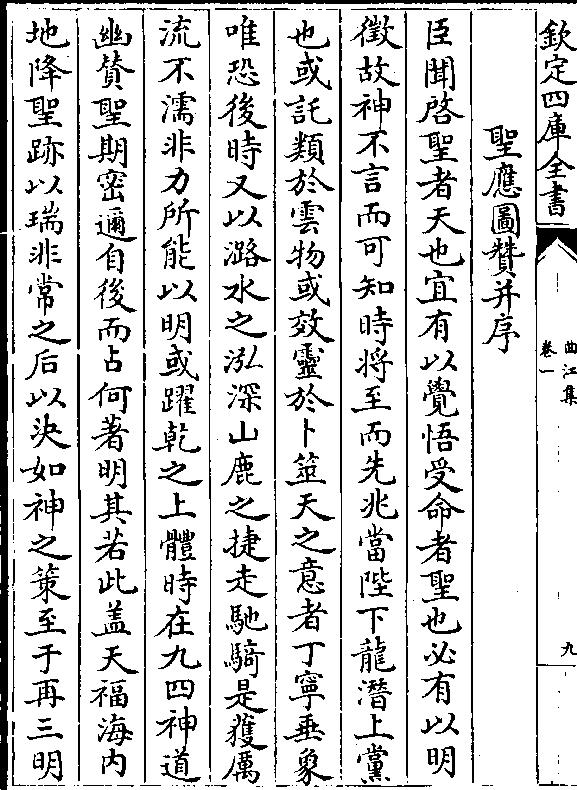 欽定四庫全書
曲江集
卷一
九
聖應圖贊并序
臣聞啓聖者天也宜有以覺悟受命者聖也必有以明
徵故神不言而可知時将至而先兆當陛下龍潛上黨
也或託類於雲物或效靈於卜筮天之意者丁寧垂象
唯恐後時又以潞水之泓深山鹿之捷走馳騎是獲厲
流不濡非力所能以明或躍乾之上體時在九四神道
幽賛聖期密邇自後而占何著明其若此盖天福海内
地降聖跡以瑞非常之后以決如神之策至于再三明